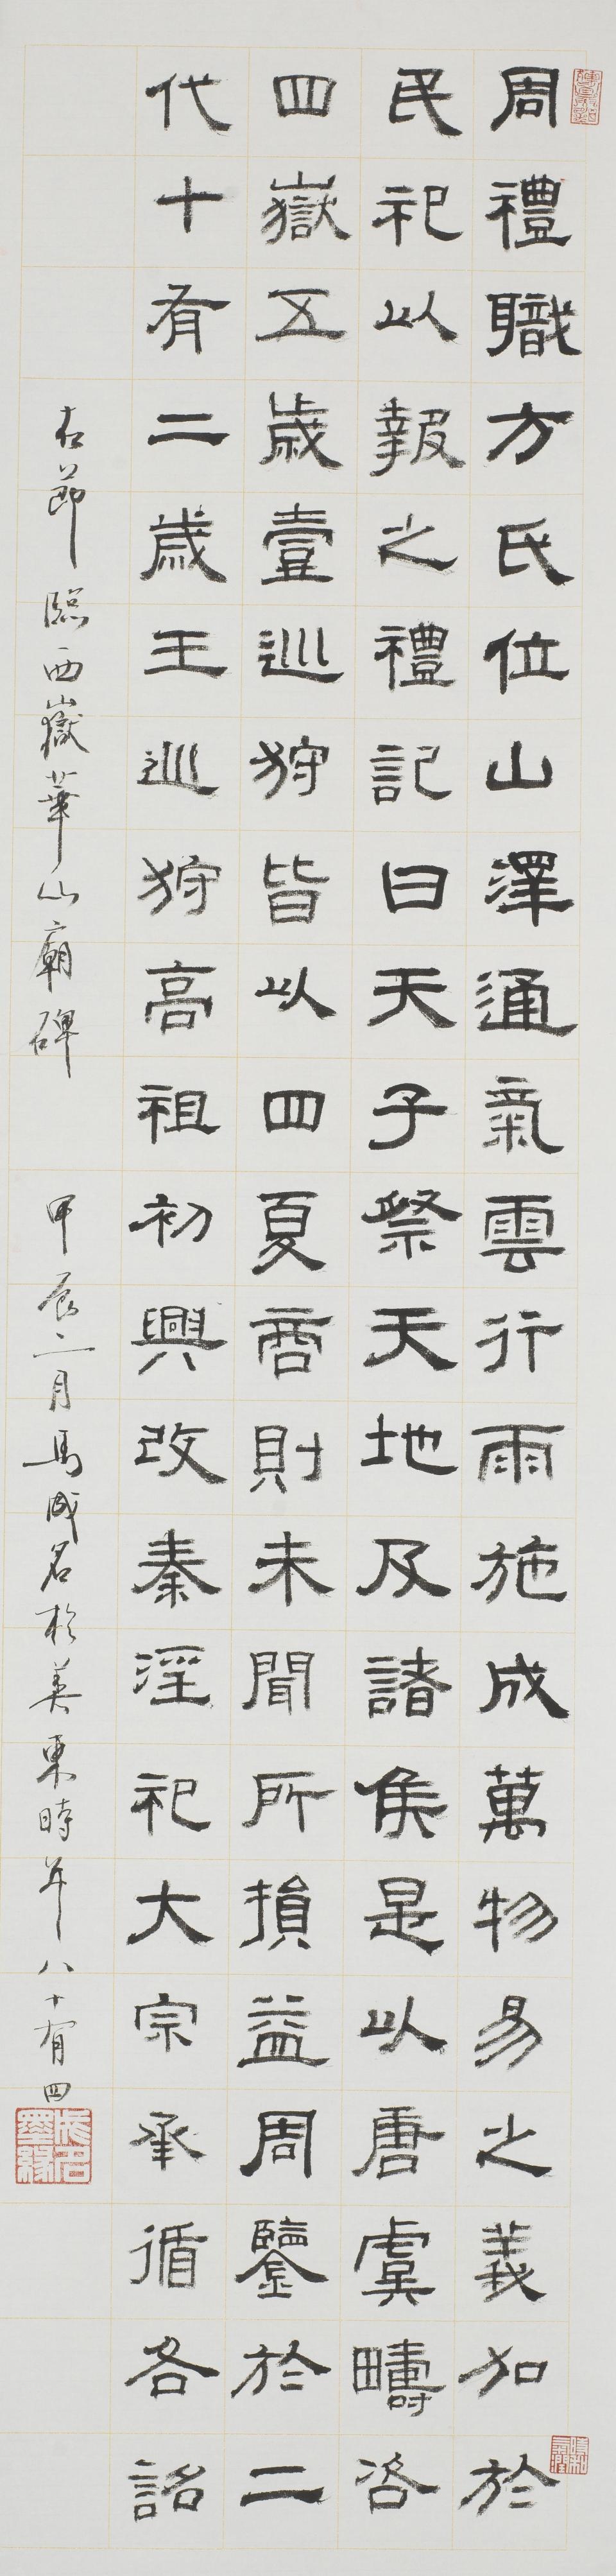 周禮職方氏位山澤通氣雲行雨施成萬物易之義加於
民祀以報之禮記曰天子祭天地及諸侯是以唐虞疇咨
四嶽五歲壹巡狩皆以四夏商則未聞所損益周鑒於二
代十有二歲王巡狩高祖初興改秦淫祀大宗承循各詔
右節臨西嶽華山廟碑 甲辰二月馬成名於美東時年八十有四
成名墨緣